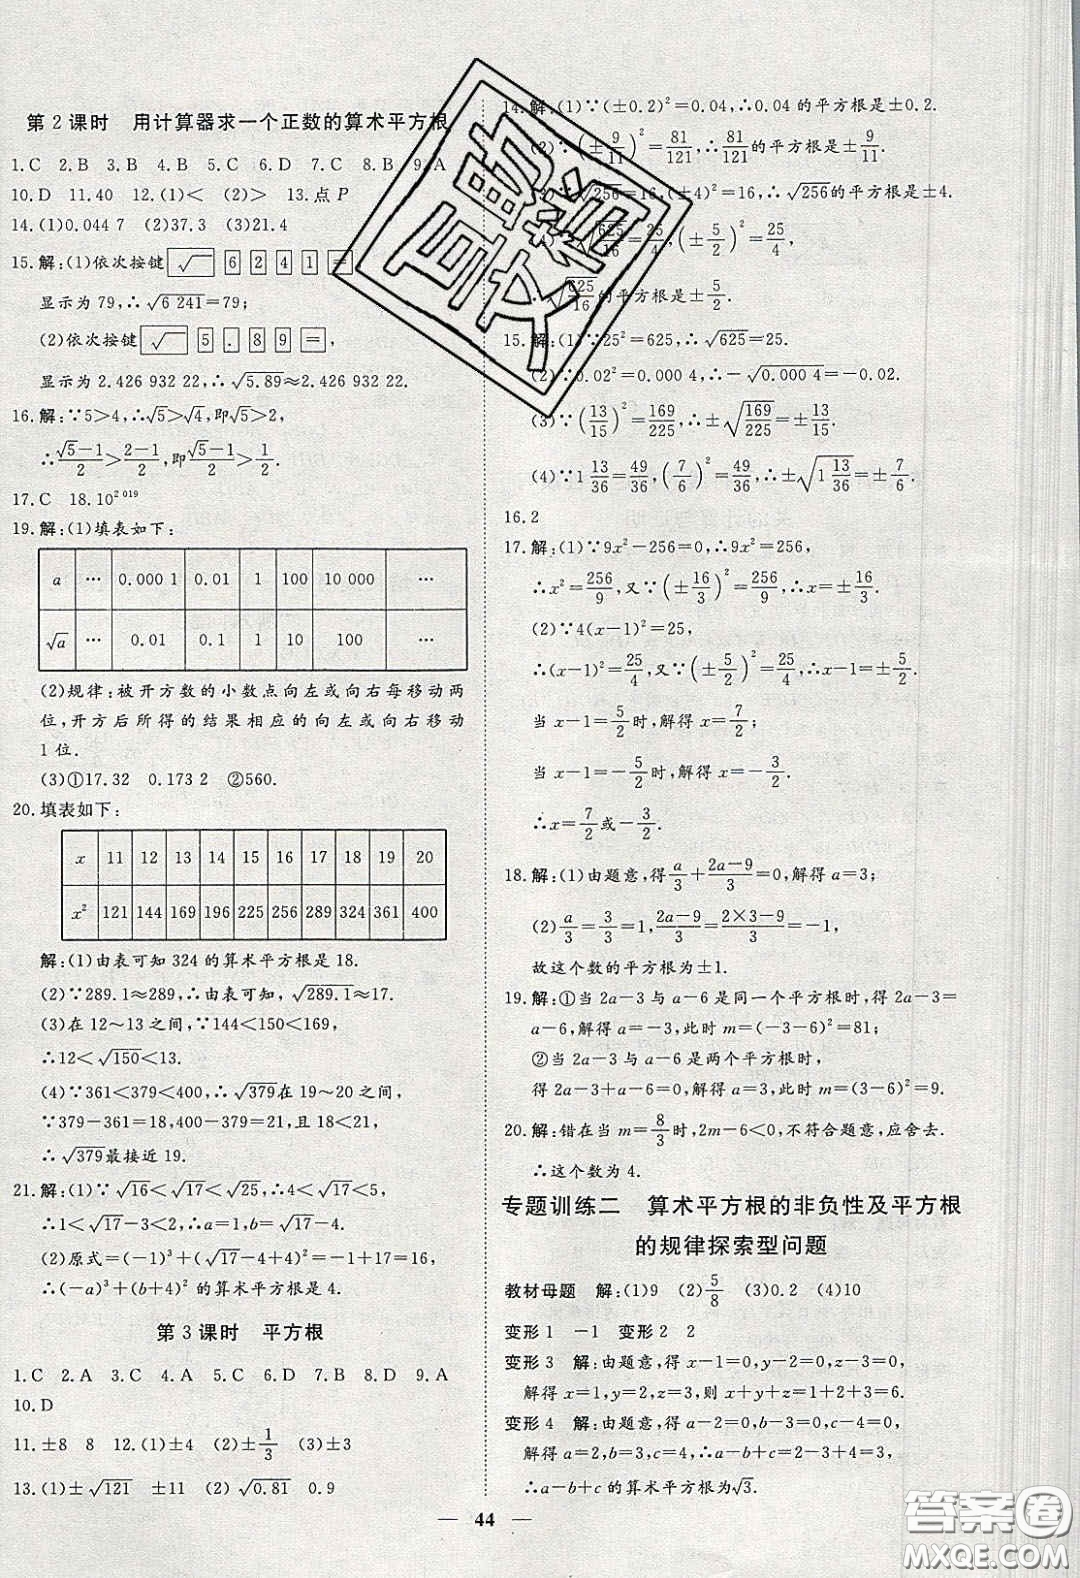 第2课时　用计算器求一个正数的算术平方根
1.C　2.B　3.B　4.B　5.C　6.D　7.C　8.B　9.A
10.D　11.40　12.(1)<　(2)>　13.点P
14.(1)0.044 7　(2)37.3　(3)21.4
15.解:(1)依次按键 √ 6 2 4 1 =
显示为 79,∴√6 241=79;
(2)依次按键 √ 5 . 8 9 =,
显示为 2.426 932 22,∴√5.89≈2.426 932 22.
16.解:∵5>4,∴√5>√4,即√5>2,
∴(√5-1)/2>(2-1)/2,即(√5-1)/2>1/2.
17.C　18.10^2 019
19.解:(1)填表如下:
a … 0.000 1 0.01 1 100 10 000 …
√a … 0.01 0.1 1 10 100 …
(2)规律:被开方数的小数点向左或向右每移动两
位,开方后所得的结果相应的向左或向右移动
1位.
(3)①17.32　0.173 2　②560.
20.填表如下:
x 11 12 13 14 15 16 17 18 19 20
x² 121 144 169 196 225 256 289 324 361 400
解:(1)由表可知 324 的算术平方根是 18.
(2)∵289.1≈289,∴由表可知,√289.1≈17.
(3)在 12～13 之间,∵144<150<169,
∴12<√150<13.
(4)∵361<379<400,∴√379在 19～20 之间,∵
∵379-361=18,400-379=21,18<21,
∴√379最接近 19.
21.解:(1)∵√16<√17<√25,∴4<√17<5,
∴1<√17-3<2,∴a=1,b=√17-4;
(2)原式=(-1)³+(√17-4+4)²=-1+17=16,
∴(-a)³+(b+4)²的算术平方根是4.
第3课时　平方根
1.C　2.A　3.C　4.A　5.A　6.C　7.A　8.D　9.A
10.D
11.±8　8　12.(1)±4　(2)±1/3　(3)±3
13.(1)±√121　±11　(2)√0.81　0.9
14.解:(1)∵(±0.2)²=0.04,∴0.04的平方根是±0.2.
(2)∵(±9/11)²=81/121,∴81/121的平方根是±9/11.
√256=16,(±4)²=16,∴√256的平方根是±4.
√625/16=25/4,(±5/2)²=25/4,
∴√625/16的平方根是±5/2.
15.解:(1)∵25²=625,∴√625=25.
(2)∵0.02²=0.000 4,∴-√0.000 4=-0.02.
(3)∵(13/15)²=169/225,∴±√169/225=±13/15.
(4)∵1 13/36=49/36,(7/6)²=49/36,∴±√1 13/36=±7/6.
16.2
17.解:(1)∵9x²-256=0,∴9x²=256,
∴x²=256/9,又∵(±16/3)²=256/9,∴x=±16/3.
(2)∵4(x-1)²=25,
∴(x-1)²=25/4,又∵(±5/2)²=25/4,∴x-1=±5/2.
当 x-1=5/2时,解得 x=7/2;
当 x-1=-5/2时,解得 x=-3/2.
∴x=7/2或-3/2.
18.解:(1)由题意,得a/3+(2a-9)/3=0,解得 a=3;
(2)a/3=3/3=1,(2a-9)/3=(2×3-9)/3=-1,
故这个数的平方根为±1.
19.解:①当 2a-3 与 a-6 是同一个平方根时,得 2a-3=
a-6,解得 a=-3,此时 m=(-3-6)²=81;
②当 2a-3 与 a-6 是两个平方根时,
得 2a-3+a-6=0,解得 a=3,此时 m=(3-6)²=9.
20.解:错在当 m=8/3时,2m-6<0,不符合题意,应舍去.
∴这个数为 4.
专题训练二　算术平方根的非负性及平方根
的规律探索型问题
教材母题　解:(1)9　(2)5/8　(3)0.2　(4)10
变形1　-1　变形2　2
变形3　解:由题意,得 x-1=0,y-2=0,z-3=0,
解得 x=1,y=2,z=3,则 x+y+z=1+2+3=6.
变形4　解:由题意,得 a-2=0,b-3=0,c-4=0,
解得 a=2,b=3,c=4,∴a-b+c=2-3+4=3,
∴a-b+c的算术平方根为√3.
44
答案圈
MXQE.COM